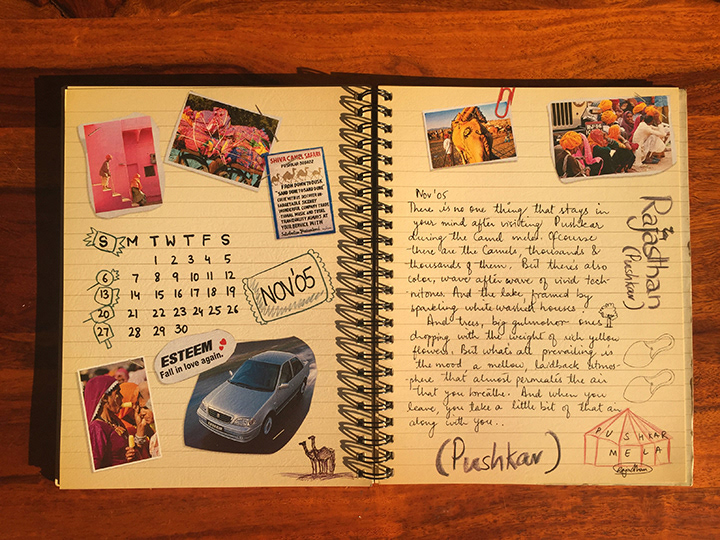 SHIVA CAMEL SAFARI
PUSHKAR DESERT
FROM DOWN TO DUSK
"SAND DUNE TO SAND DUNE"
WONDERFUL COMPANY
TIONAL MUSIC AND TOTAL
TRANQUILITY ALWAYS AT
YOUR SERVICE WITH
S M T W T F S
1 2 3 4 5
6 7 8 9 10 11 12
13 14 15 16 17 18 19
20 21 22 23 24 25 26
27 28 29 30
NOV'05
ESTEEM
Fall in love again.
Nov '05
There is no one thing that stays in
your mind after visiting Pushkar
during the Camel mela. Ofcourse
there are the Camels, thousands &
thousands of them. But there's also
color, wave after wave of vivid tech-
nitones. And the lake, framed by
sparkling white washed houses.
And trees, big gulmohor ones
dropping with the weight of rich yellow
flowers. But whats all prevailing is
the mood, a mellow, laidback atmos-
phere that almost permeates the air
that you breathe. And when you
leave, you take a little bit of that air
along with you..
(Pushkar)
Rajasthan
(Pushkar)
PUSHKAR
MELA
Rajasthan